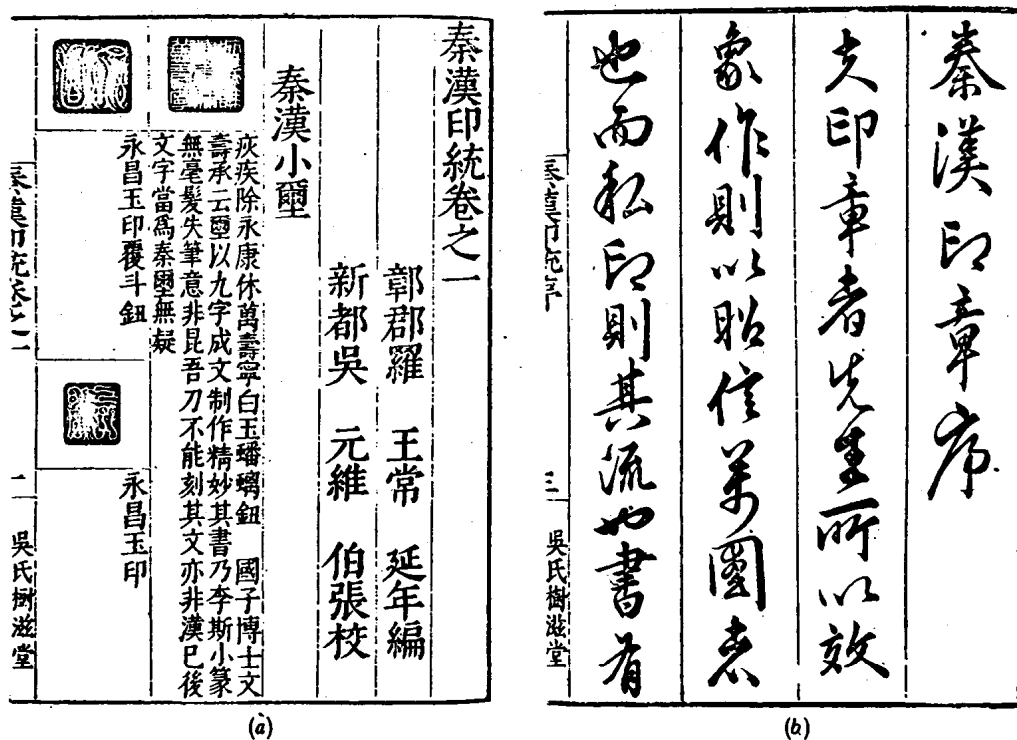 秦漢印統卷之一
鄣郡羅 王常 延年編
新都吳 元維 伯張校
秦漢小璽
疢疾除永康休萬壽寧白玉蟠螭鈕 國子博士文
壽承云璽以九字成文制作精妙其書乃李斯小篆
無毫髮失筆意非昆吾刀不能刻其文亦非漢已後
文字當爲秦璽無疑
永昌玉印覆斗鈕
永昌玉印
秦漢印統卷之一
二
吳氏樹滋堂
(a)
秦漢印章序
夫印章者先王所以效
象作則以昭信萬國者
也而私印則其流也書有
秦漢印統序
三
吳氏樹滋堂
(b)